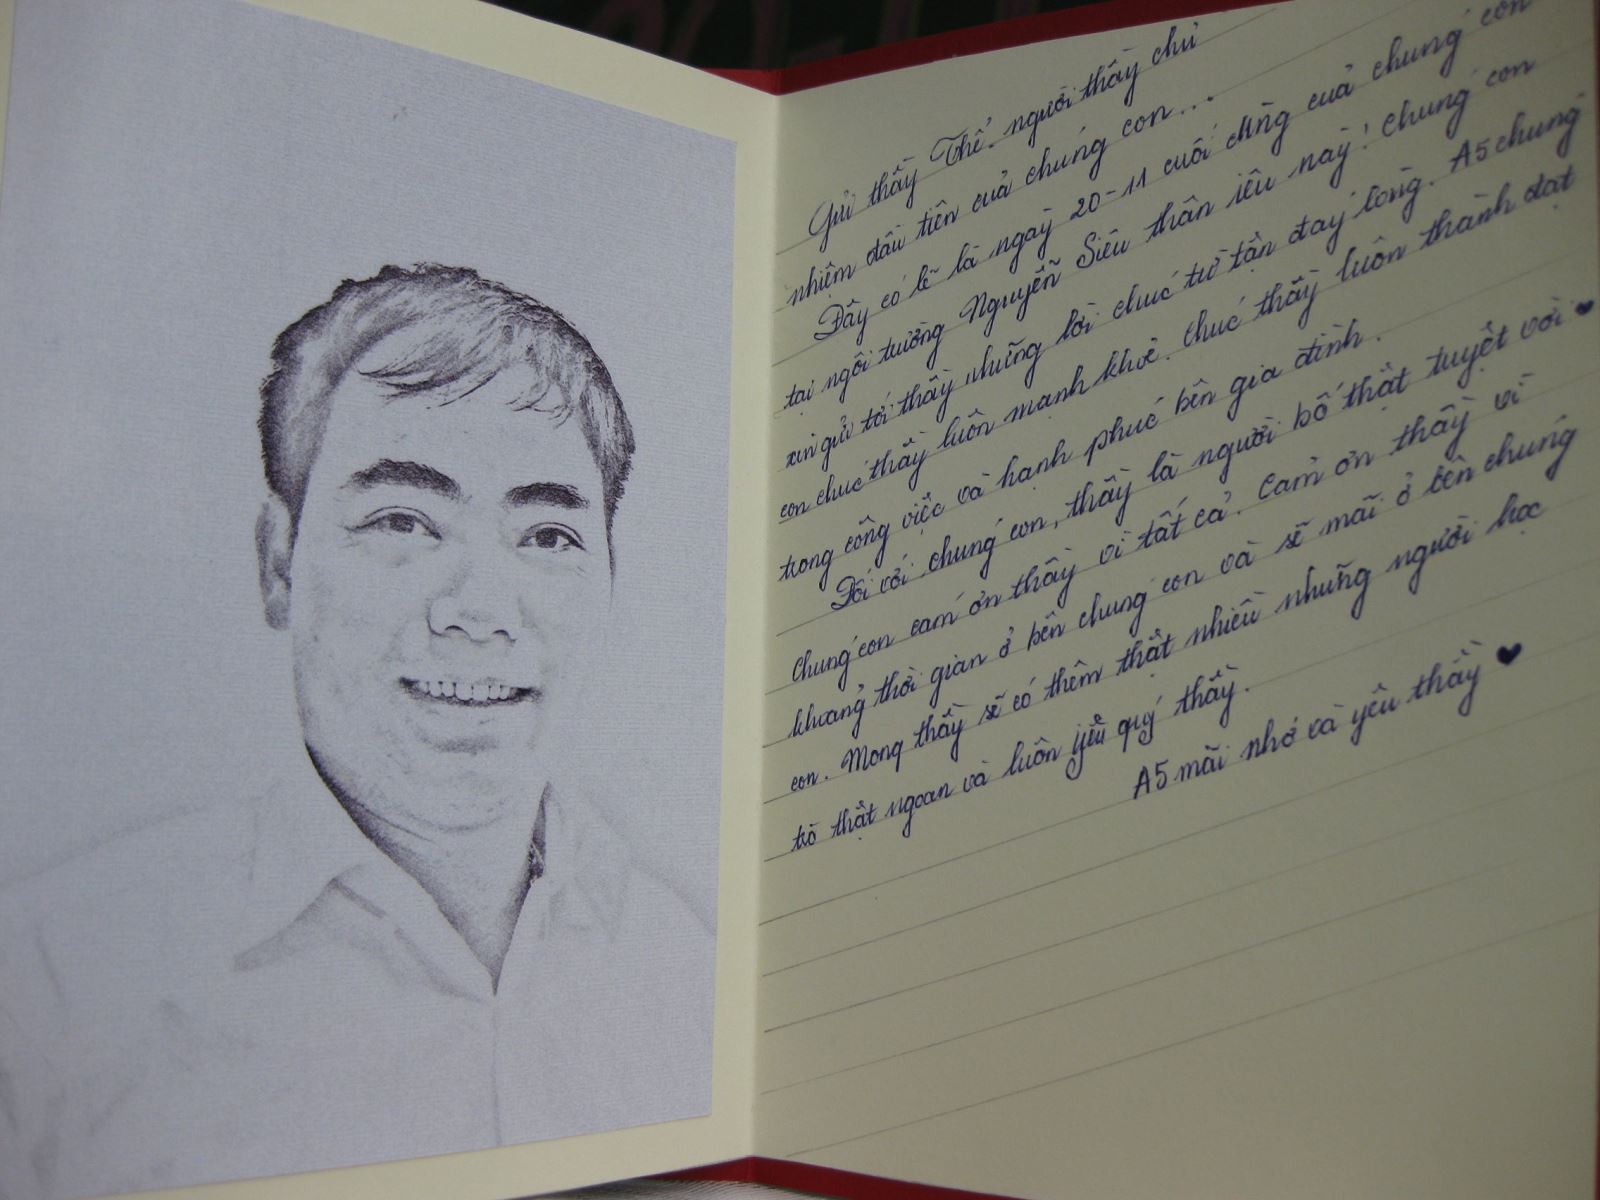 Gửi thầy Thể, người thầy chủ
nhiệm đầu tiên của chúng con...
Đây có lẽ là ngày 20-11 cuối cùng của chúng con
tại ngôi trường Nguyễn Siêu thân iêu này! Chúng con
xin gửi tới thầy những lời chúc từ tận đáy lòng. A5 chúng
con chúc thầy luôn mạnh khoẻ. Chúc thầy luôn thành đạt
trong công việc và hạnh phúc bên gia đình.
Đối với chúng con, thầy là người bố thật tuyệt vời ♥
Chúng con cảm ơn thầy vì tất cả. Cảm ơn thầy vì
khoảng thời gian ở bên chúng con và sẽ mãi ở bên chúng
con. Mong thầy sẽ có thêm thật nhiều những người học
trò thật ngoan và luôn yêu quý thầy.
A5 mãi nhớ và yêu thầy ♥